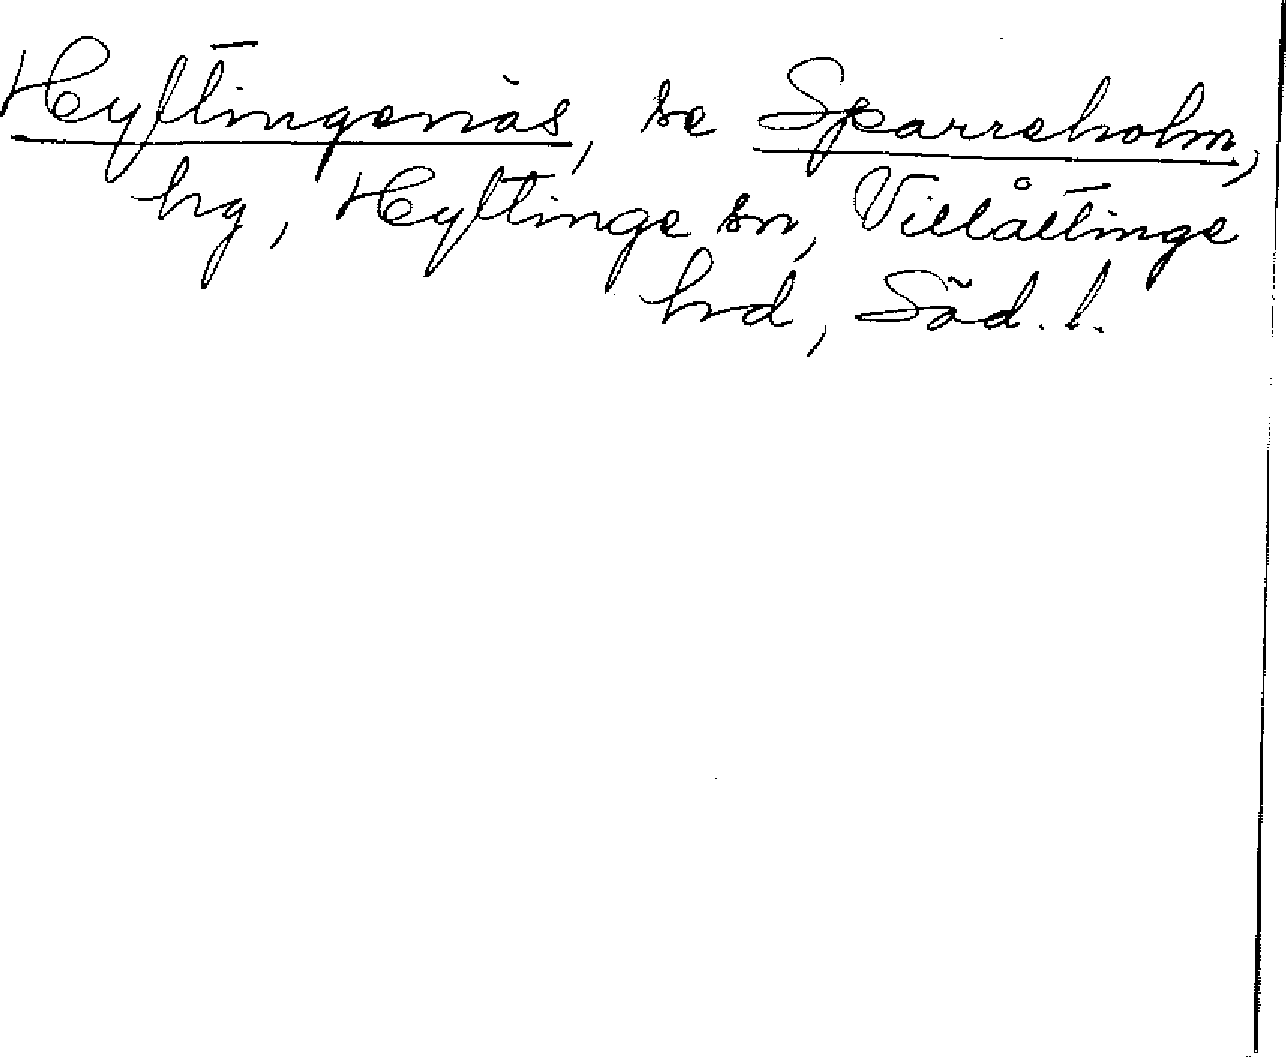 Hyltingenäs, se Sparreholm,
hg, Hyltinge sn, Villåttinge
hd, Söd. l.